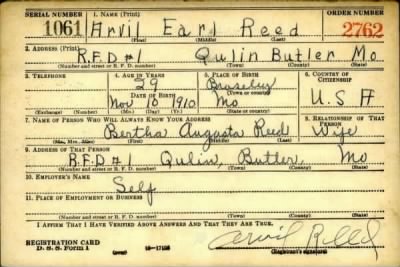 SERIAL NUMBER 1. NAME (Print) ORDER NUMBER
1061 Arvil Earl Reed 2762
(First) (Middle) (Last)
2. ADDRESS (Print)
R.F.D #1 Qulin Butler Mo
(Number and street or R. F. D. number) (Town) (County) (State)
3. TELEPHONE 4. AGE IN YEARS 5. PLACE OF BIRTH 6. COUNTRY OF CITIZENSHIP
29
DATE OF BIRTH (Town or county)
Nov 10 1910 Mo U.S A
(Exchange) (Number) (Mo.) (Day) (Yr.) (State or country)
7. NAME OF PERSON WHO WILL ALWAYS KNOW YOUR ADDRESS 8. RELATIONSHIP OF THAT PERSON
Bertha Augusta Reed Wife
(Mr., Mrs., Miss) (First) (Middle) (Last)
9. ADDRESS OF THAT PERSON
R.F.D #1 Qulin, Butler, Mo
(Number and street or R. F. D. number) (Town) (County) (State)
10. EMPLOYER'S NAME
Self
11. PLACE OF EMPLOYMENT OR BUSINESS
(Number and street or R. F. D. number) (Town) (County) (State)
I AFFIRM THAT I HAVE VERIFIED ABOVE ANSWERS AND THAT THEY ARE TRUE.
REGISTRATION CARD
D. S. S. Form 1 (over) Arvil Reed
(Registrant's signature)